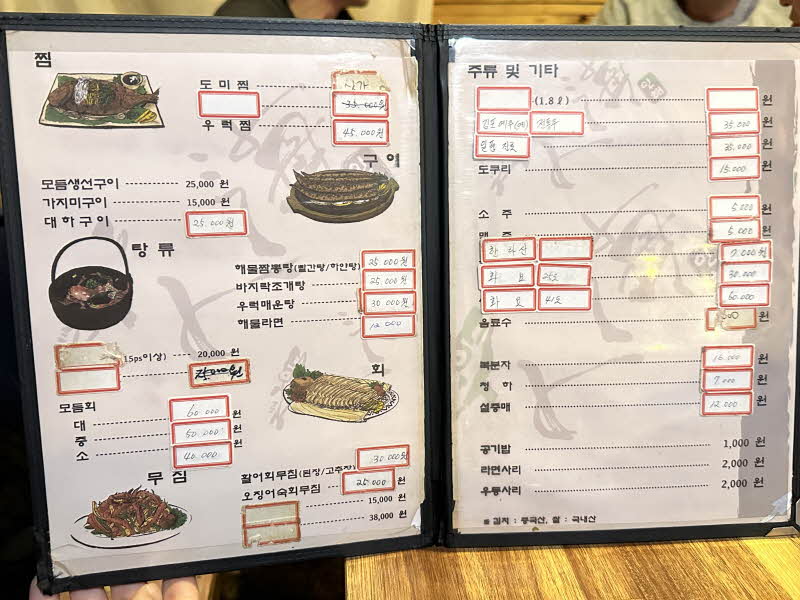 찜
도미찜 싯가
35.000원
우럭찜 45.000원
구이
모듬생선구이 25,000 원
가지미구이 15,000 원
대하구이 25.000원
탕류
해물짬뽕탕(빨간탕/하얀탕) 25.000원
바지락조개탕 25.000원
우럭매운탕 30.000원
해물라면 12.000
(15ps이상) 20,000 원
회
모듬회
대 60.000 원
중 50.000 원
소 40.000 원
무침
활어회무침(된장/고추장) 30.000원
오징어숙회무침 25.000 원
15,000 원
38,000 원
주류 및 기타
(1.8ℓ) 원
35.000 원
35.000 원
도쿠리 15.000 원
소주 5.000 원
맥주 5.000 원
한라산 7.000원
화요 25도 30.000 원
화요 41도 60.000 원
음료수 원
복분자 16.000 원
청하 7.000 원
설중매 12.000 원
공기밥 1,000 원
라면사리 2,000 원
우동사리 2,000 원
※ 김치 : 중국산, 쌀 : 국내산